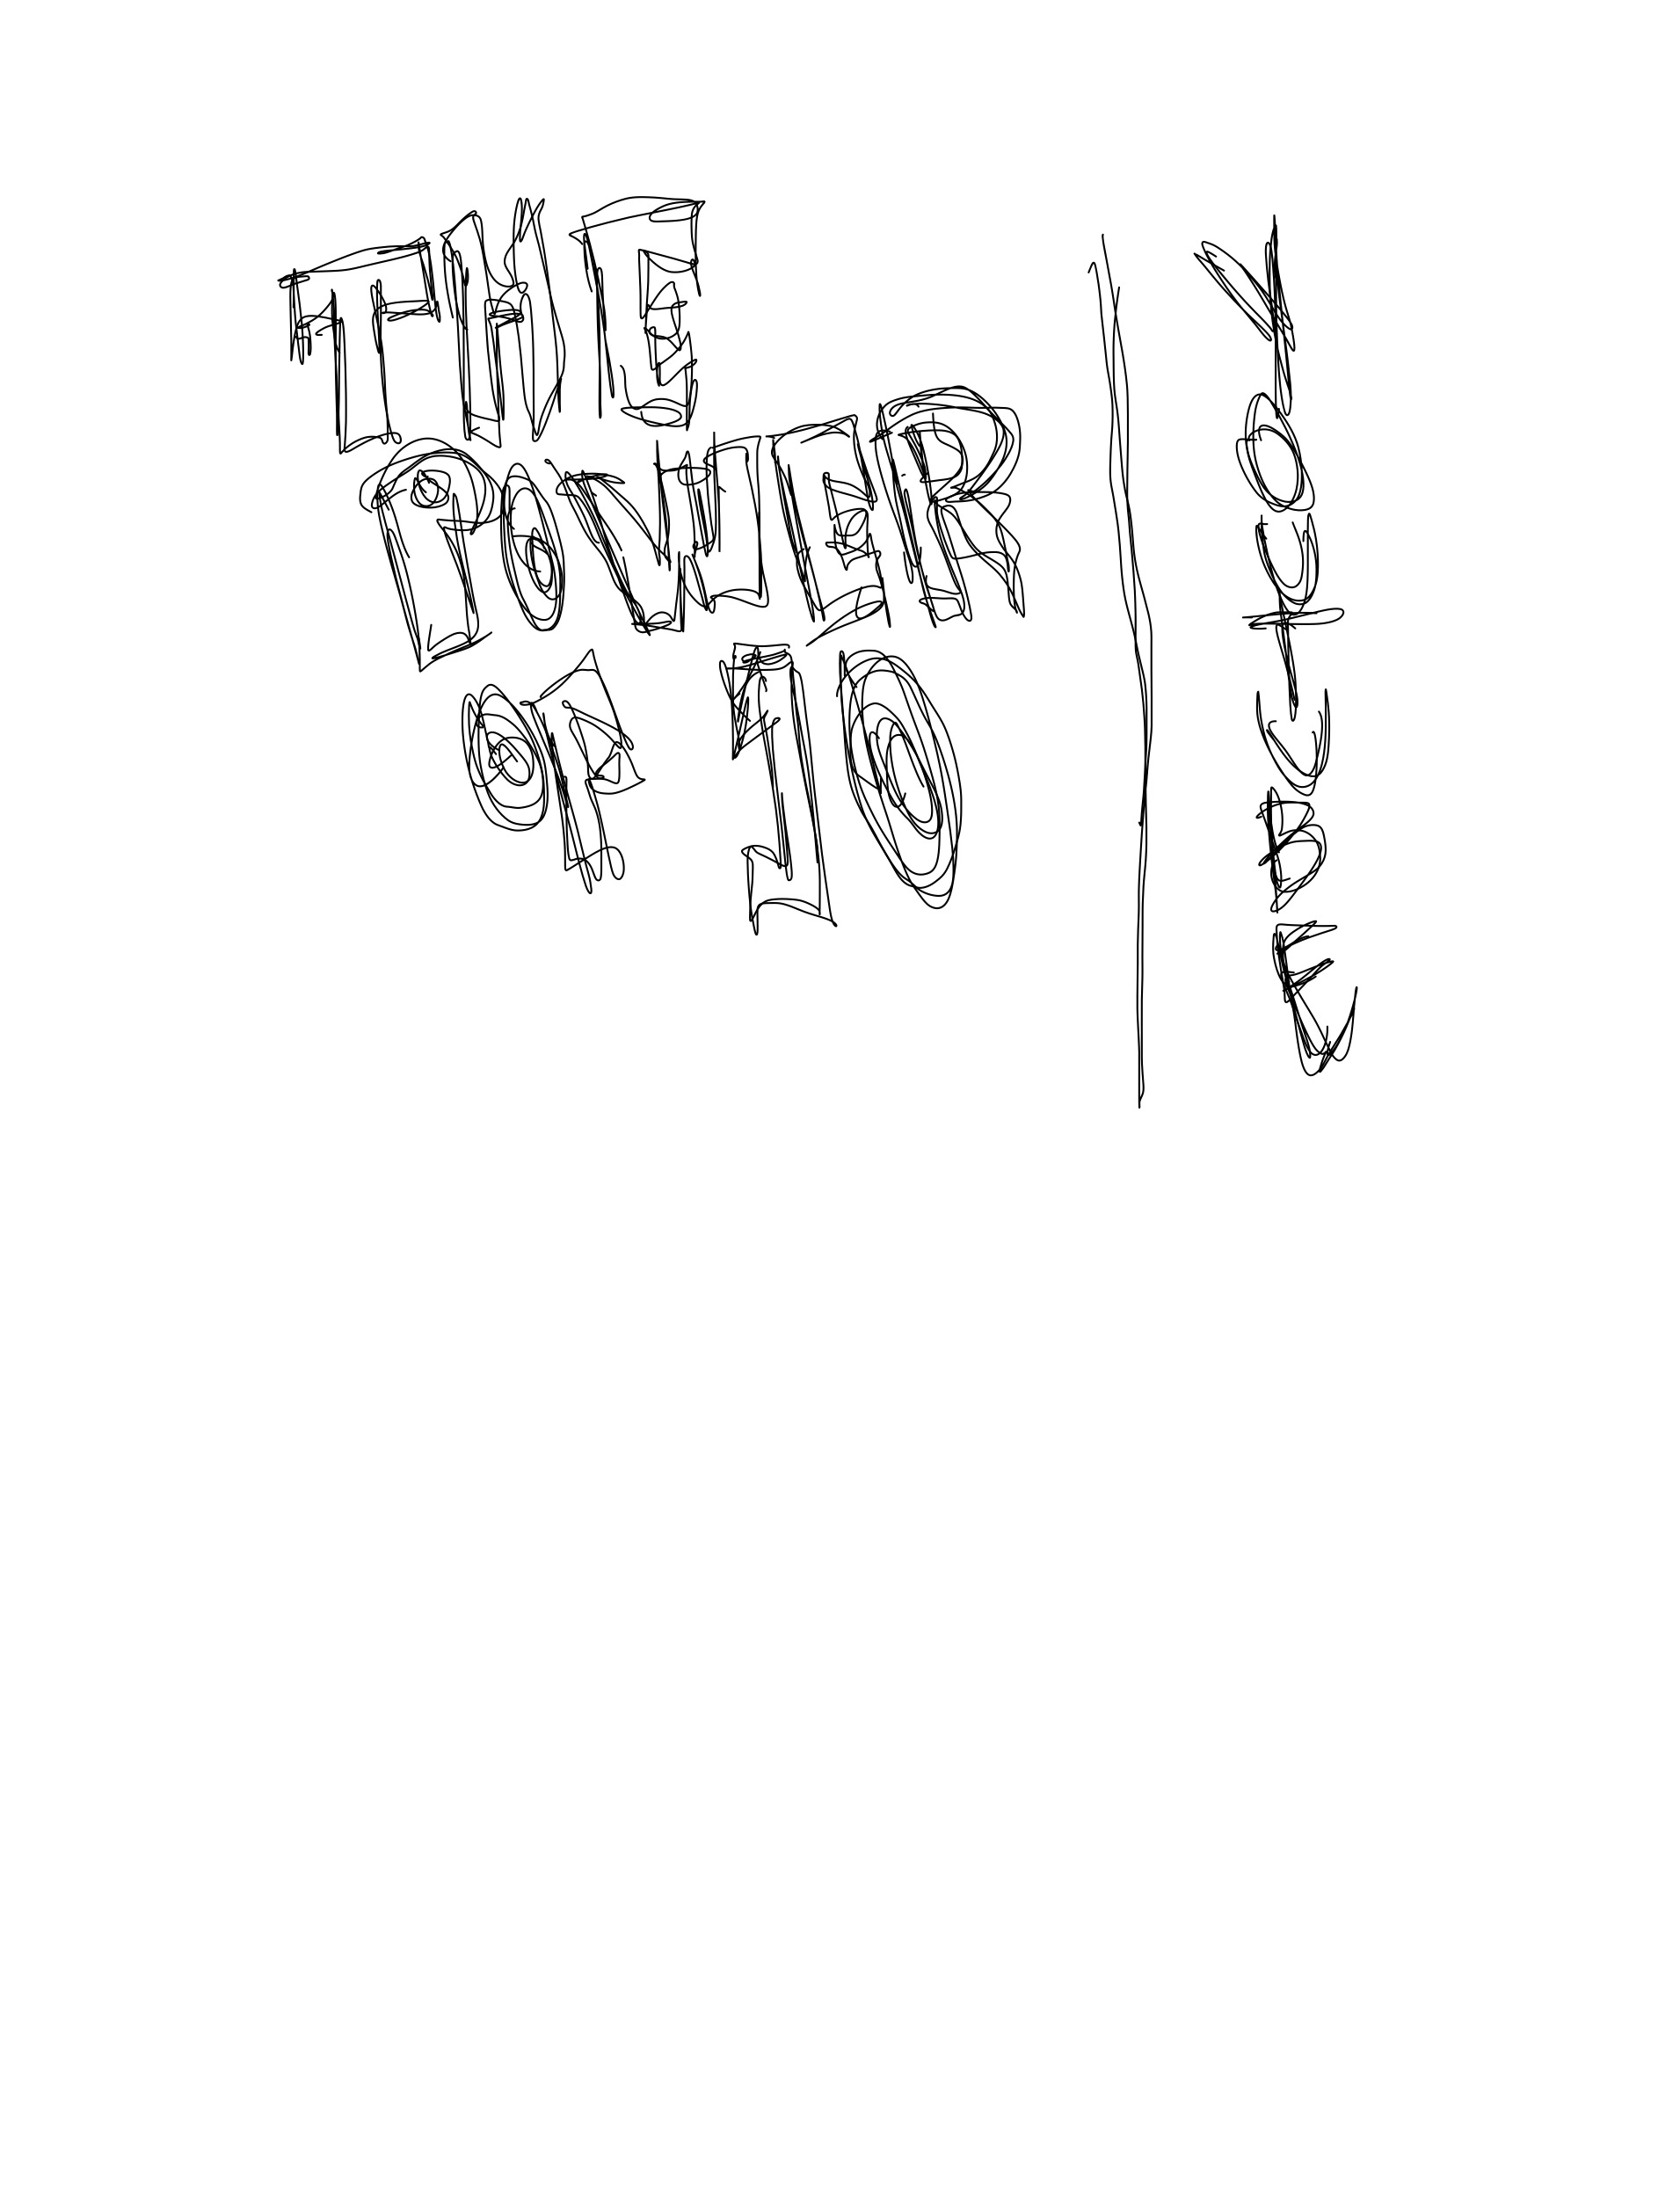 THE
POWER
OF 10
YOUTUBE